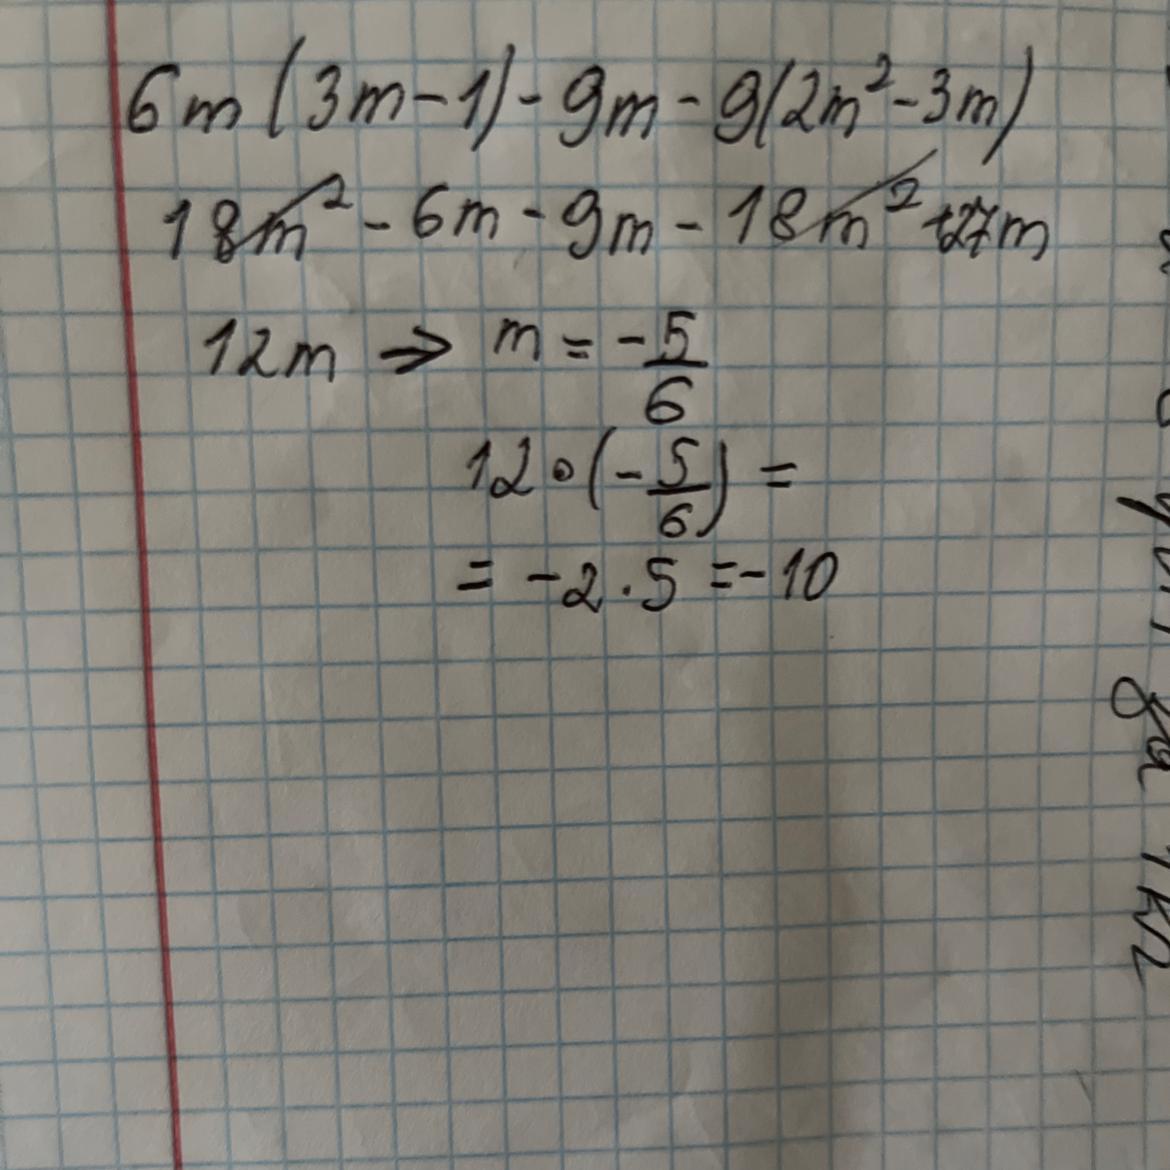 6m(3m-1)-9m-9(2m²-3m)
18m²-6m-9m-18m²+27m
12m ⇒ m = -5/6
12∘(-5/6) =
= -2·5 = -10